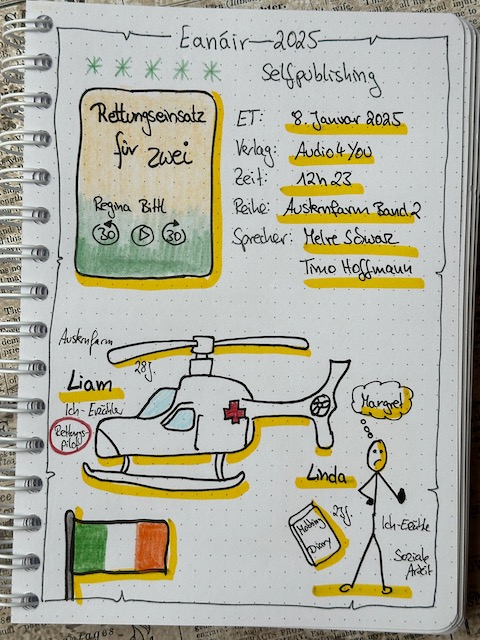 Eanáir 2025
Selfpublishing
Rettungseinsatz
für zwei
Regina Bittl
30 30
ET: 8. Januar 2025
Verlag: Audio4You
Zeit: 12h 23
Reihe: Austernfarm Band 2
Sprecher: Merve Schwarz
Timo Hoffmann
Austernfarm
28J.
Liam
Ich-Erzähler
Rettungs-
pilot
Margret
Linda
23J.
Nothing
Diary
Ich-Erzähle
Soziale
Arbeit